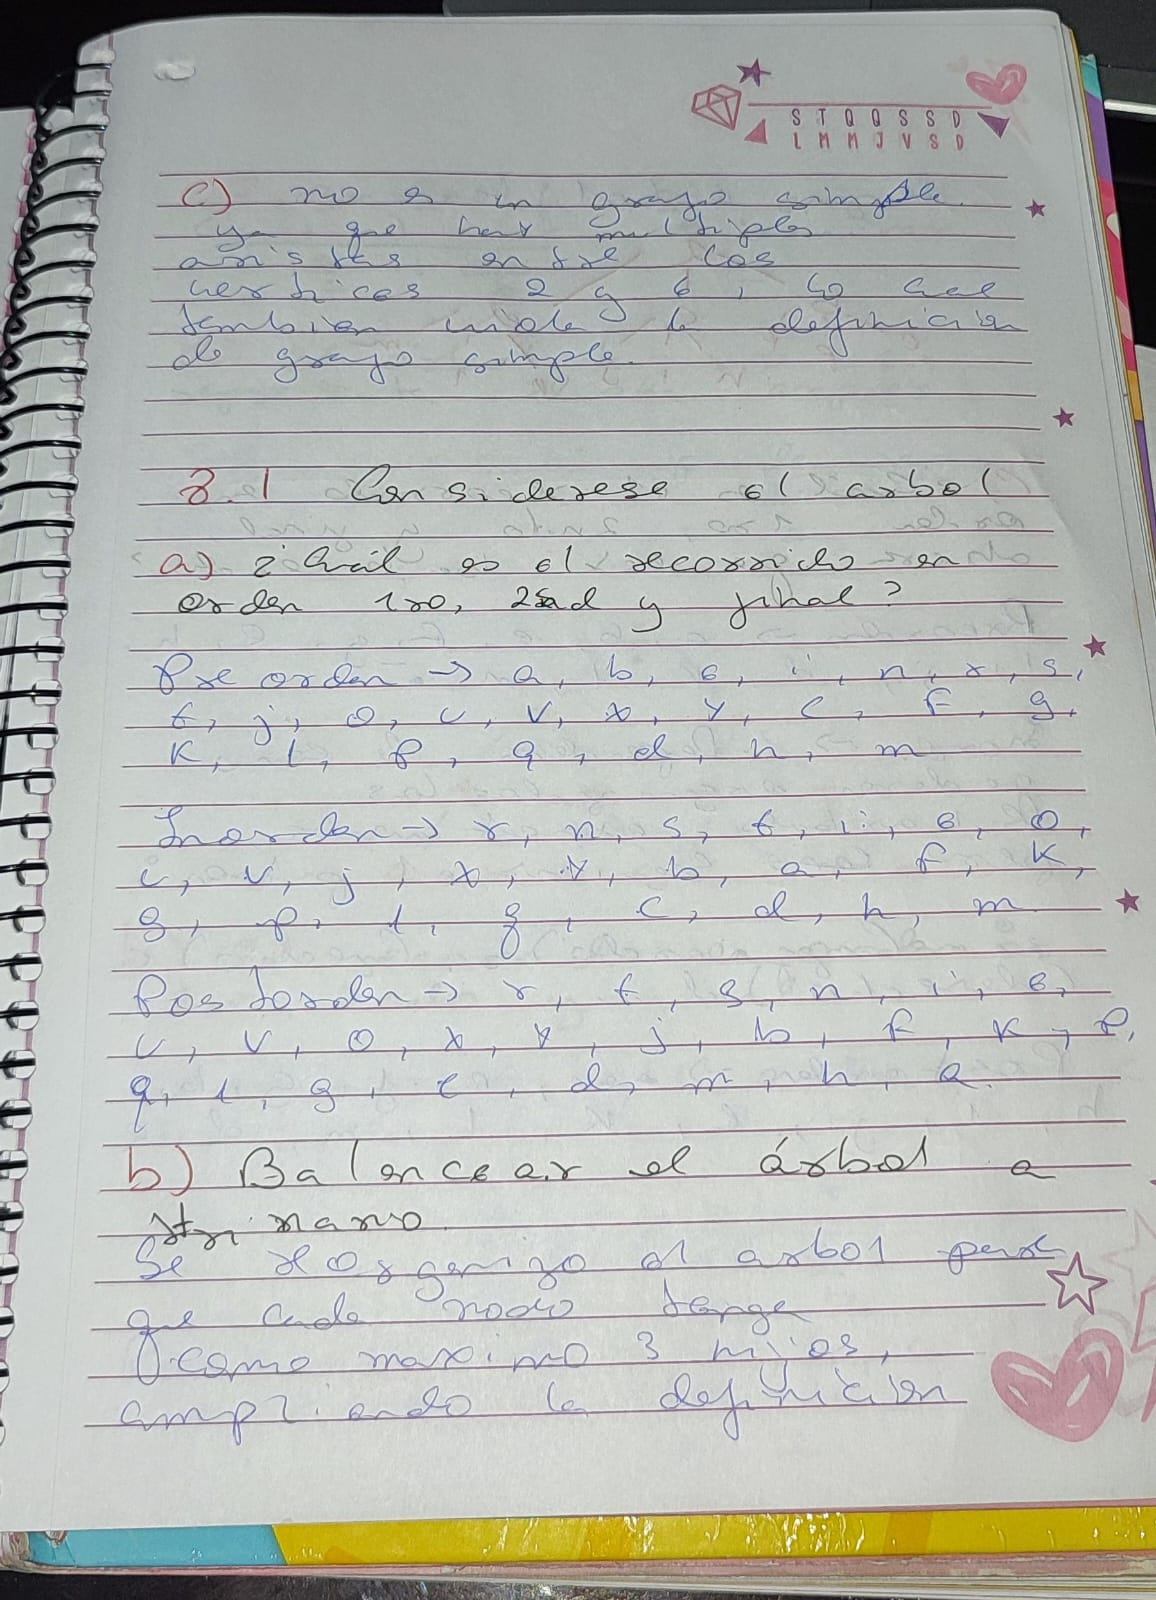 S T Q Q S S D
L M M J V S D
c) no es un grafo simple
ya que hay multiples
aristas entre los
vertices 2 y 6, lo cual
tambien viola la definición
de grafo simple.
8.1 Considerese el arbol
a) ¿Cuál es el recorrido en
orden 1ro, 2nd y final?
Pre orden → a, b, e, i, n, r, s,
t, j, o, u, v, x, y, c, f, g,
k, l, p, q, d, h, m
Inorden → r, n, s, t, i, e, o,
u, v, j, x, y, b, a, f, k,
g, p, l, q, c, d, h, m
Postorden → r, t, s, n, i, e,
u, v, o, x, y, j, b, f, k, p,
q, l, g, c, d, m, h, a.
b) Balancear el árbol a
se reorganizo el arbol para
que cada nodo tenga
como maximo 3 hijos,
ampliando la definición